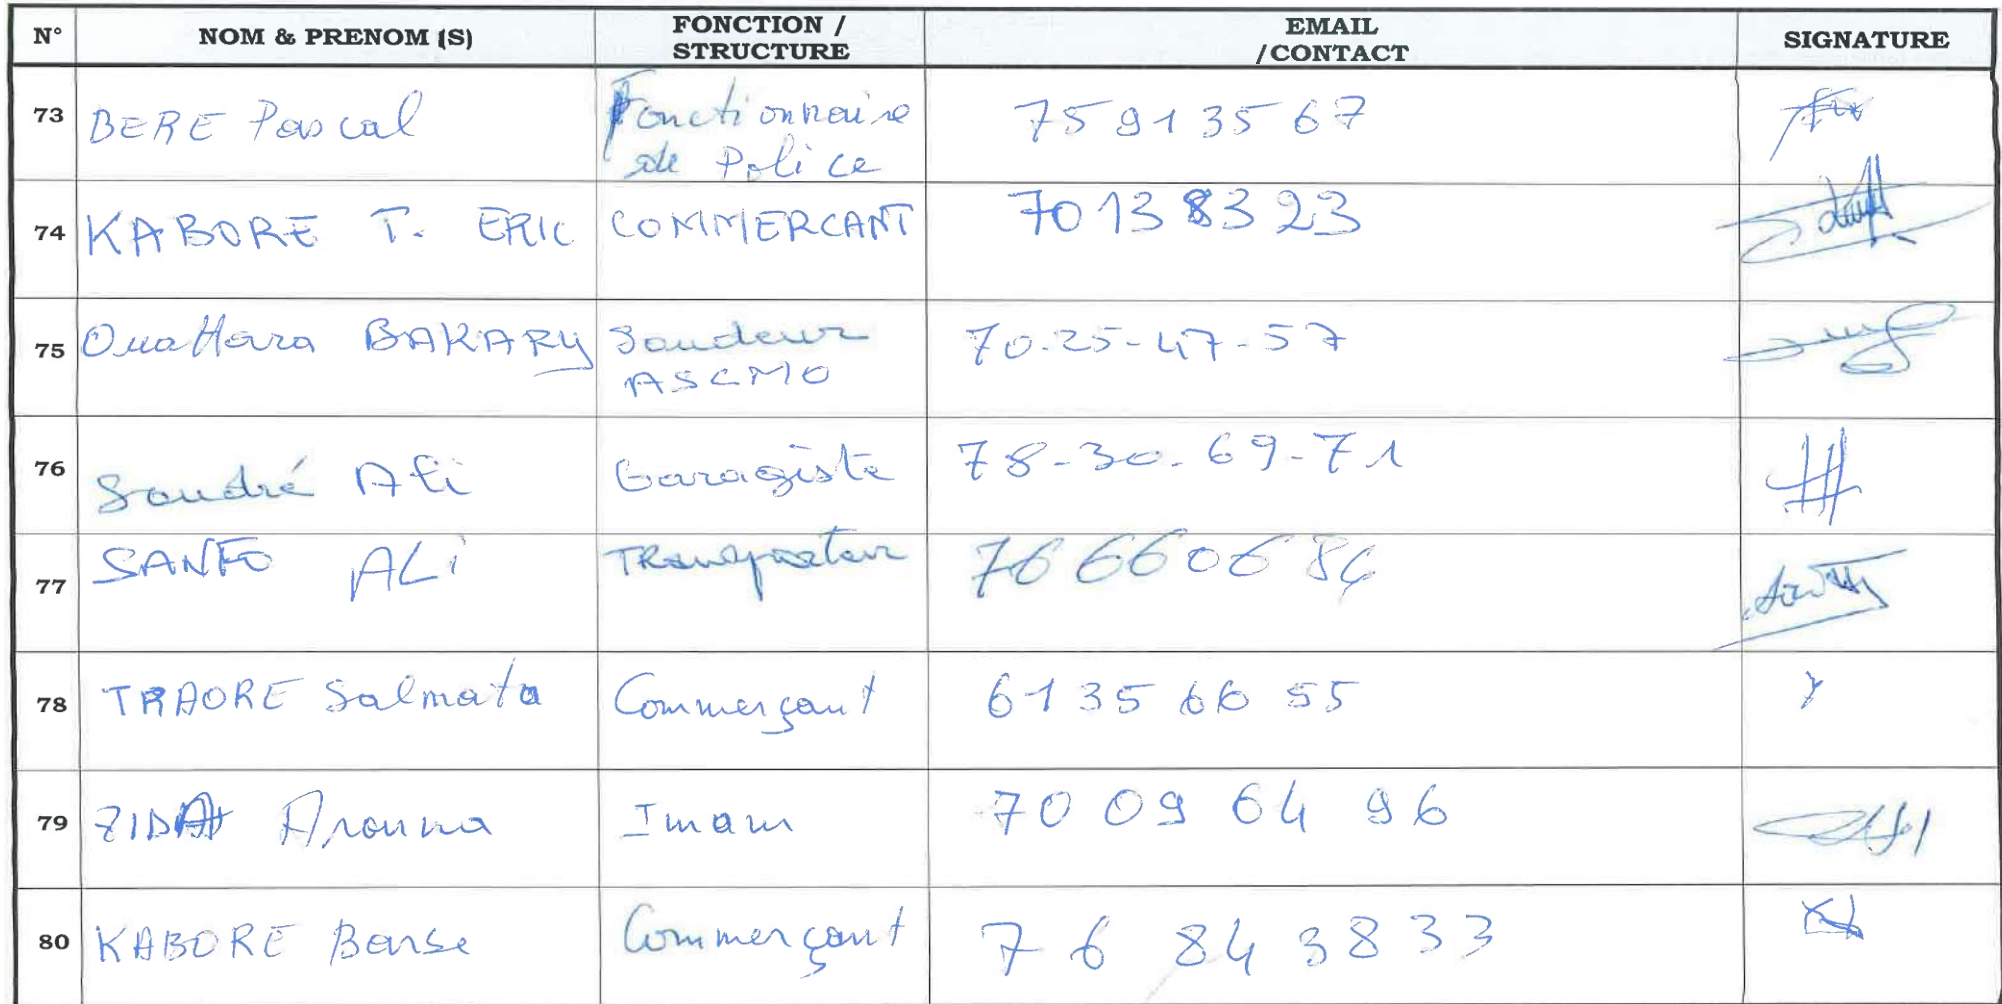 N° NOM & PRENOM (S) FONCTION / STRUCTURE EMAIL /CONTACT SIGNATURE
73 BERE Pascal Fonctionnaire de Police 75 91 35 67
74 KABORE T. ERIC COMMERCANT 70 13 83 23
75 Ouattara BAKARY Soudeur ASCMO 70-25-47-57
76 Soudré Ali Garagiste 78-30-69-71
77 SANFO ALi TRansporteur 76 66 06 86
78 TRAORE Salmata Commerçant 61 35 66 55
79 ZIDA Arouna Imam 70 09 64 96
80 KABORE Barse Commerçant 76 84 38 33